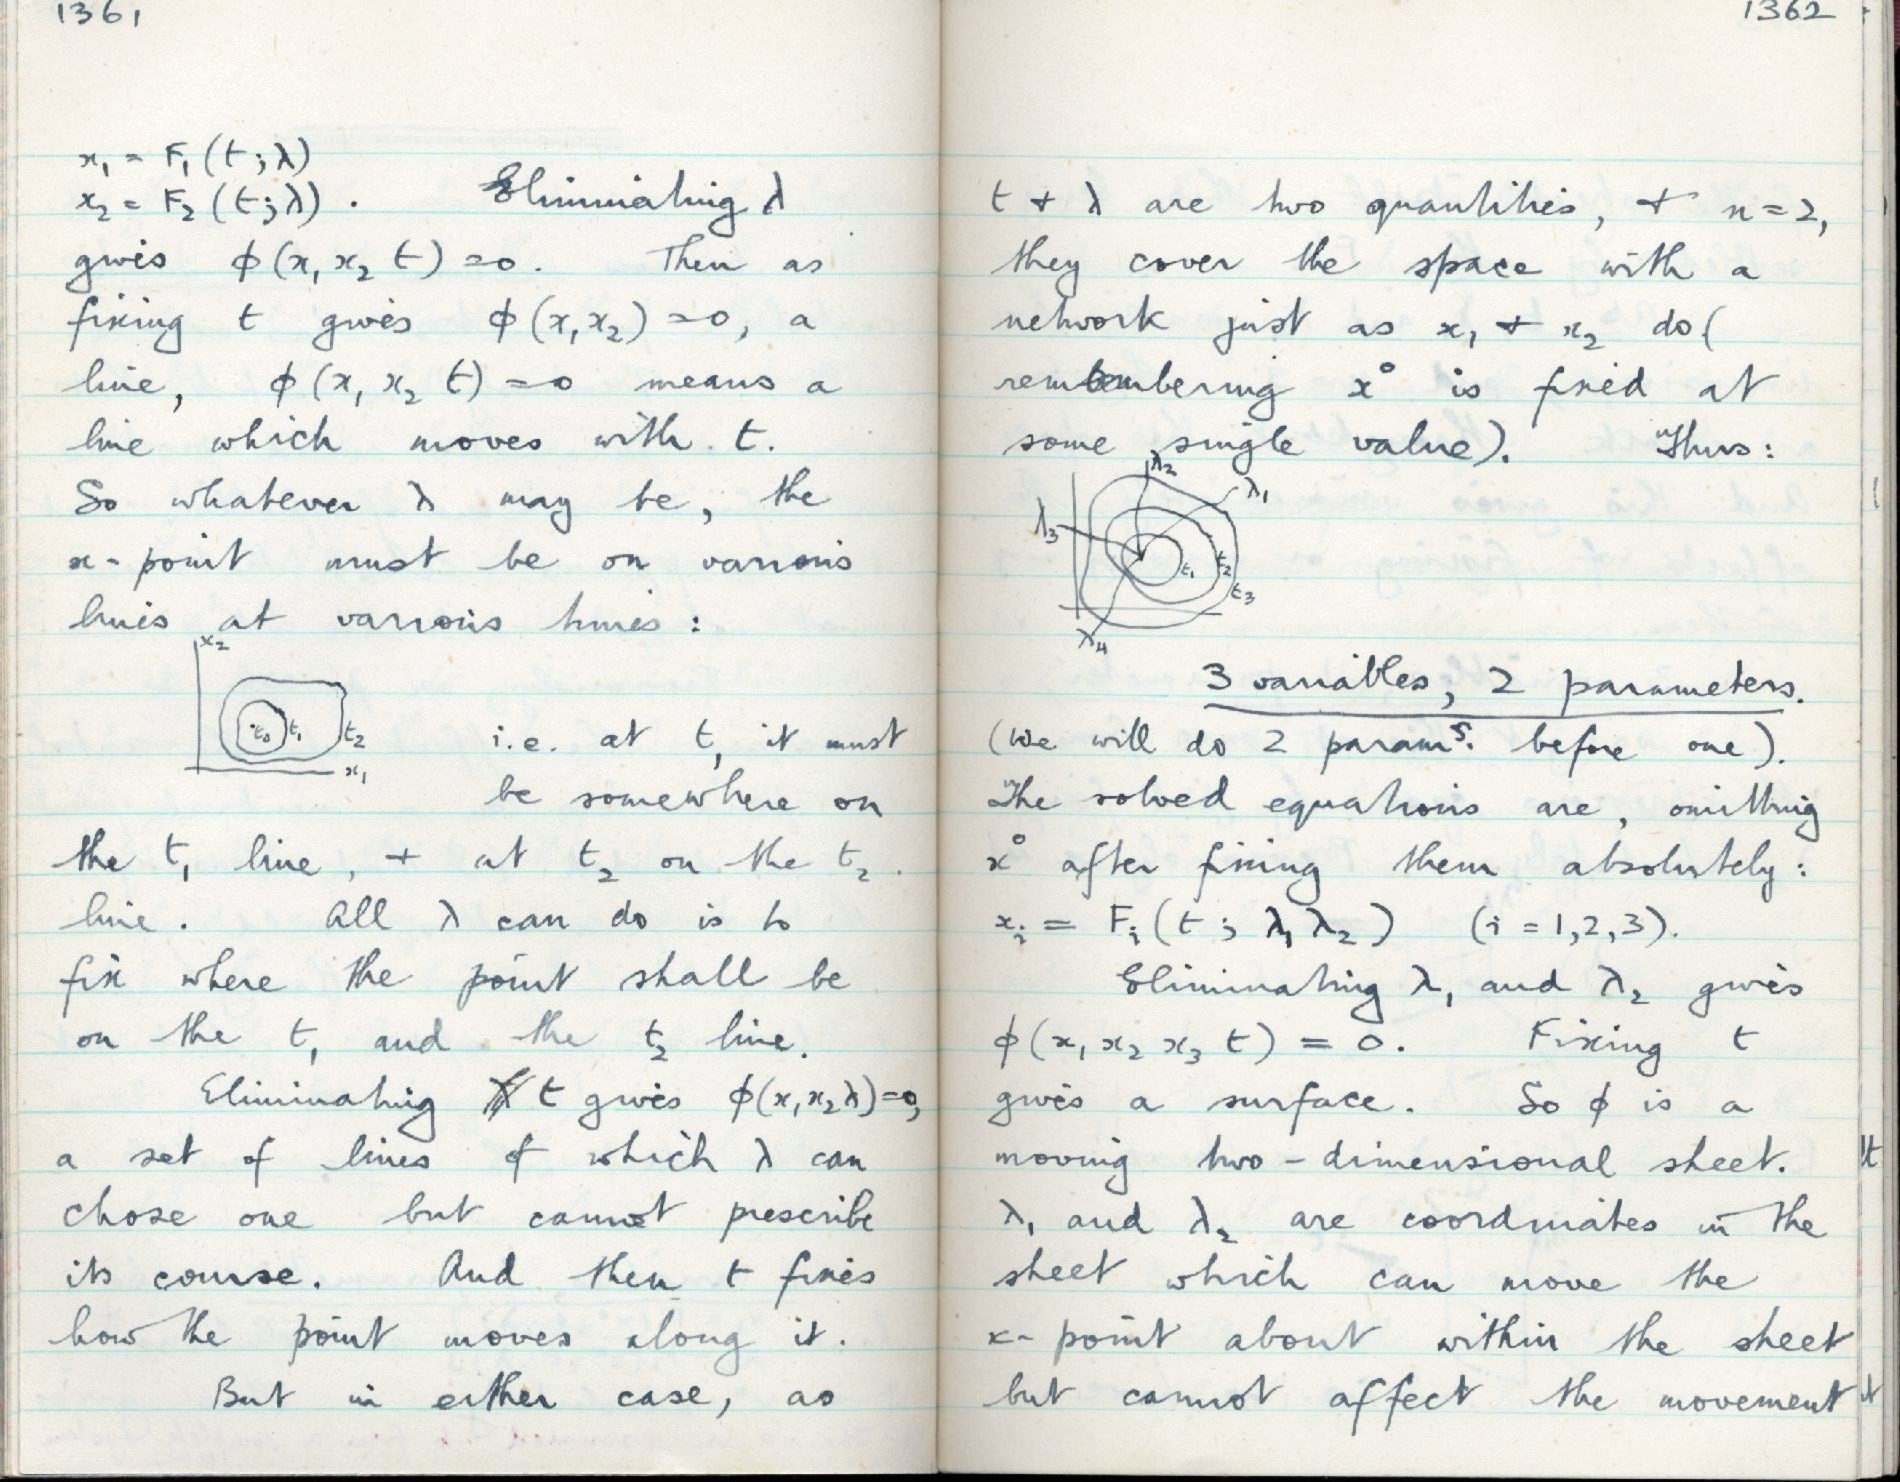 1361
x₁ = F₁(t;λ)
x₂ = F₂(t;λ). Eliminating λ
gives ϕ(x₁x₂ t) = 0. Then as
fixing t gives ϕ(x₁x₂) = 0, a
line, ϕ(x₁ x₂ t) = 0 means a
line which moves with t.
So whatever λ may be, the
x-point must be on various
lines at various times:
x₂
t₀ t₁ t₂
x₁
i.e. at t₁ it must
be somewhere on
the t₁ line, + at t₂ on the t₂
line. All λ can do is to
fix where the point shall be
on the t₁ and the t₂ line.
Eliminating t gives ϕ(x₁x₂λ)=0,
a set of lines of which λ can
chose one but cannot prescribe
its course. And then t fixes
how the point moves along it.
But in either case, as
1362
t + λ are two quantities, + n=2,
they cover the space with a
network just as x₁ + x₂ do (
remembering x⁰ is fixed at
some single value). Thus:
λ₂
λ₁
λ₃
t₁ t₂
t₃
λ₄
3 variables, 2 parameters.
(We will do 2 paramˢ. before one).
The solved equations are, omitting
x⁰ after fixing them absolutely:
xᵢ = Fᵢ(t; λ₁ λ₂) (i = 1,2,3).
Eliminating λ₁ and λ₂ gives
ϕ(x₁ x₂ x₃ t) = 0. Fixing t
gives a surface. So ϕ is a
moving two-dimensional sheet.
λ₁ and λ₂ are coordinates in the
sheet which can move the
x-point about within the sheet
but cannot affect the movement